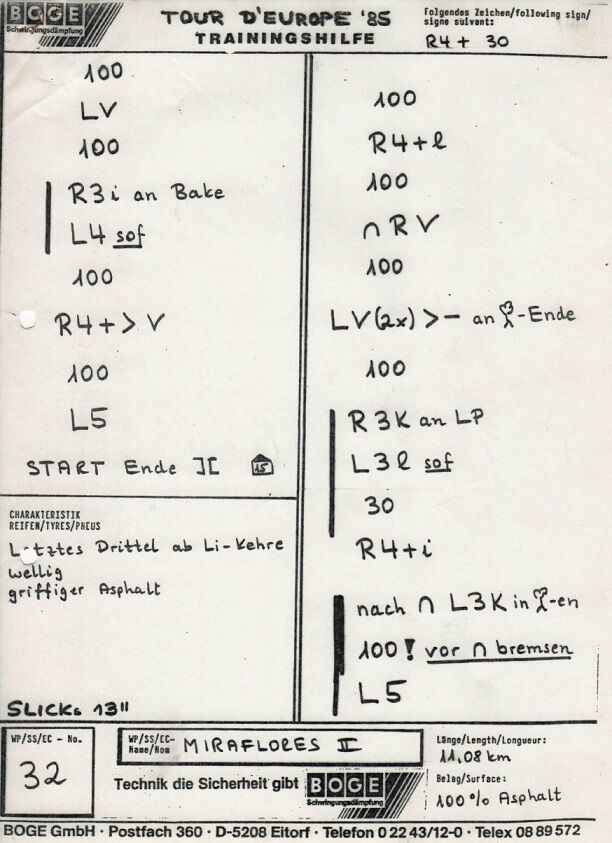 BOGE
Schwingungsdämpfung
TOUR D'EUROPE '85
TRAININGSHILFE
Folgendes Zeichen/following sign/
signe suivant:
R4+ 30
100
LV
100
R3i an Bake
L4 sof
100
R4+> V
100
L5
START Ende ][ 15
CHARAKTERISTIK
REIFEN/TYRES/PNEUS
Letztes Drittel ab Li-Kehre
wellig
griffiger Asphalt
SLICKS 13"
100
R4+l
100
∩ R V
100
LV(2x) >– an -Ende
100
R3K an LP
L3l sof
30
R4+i
nach ∩ L3K in -en
100! vor ∩ bremsen
L5
WP/SS/EC - No.
32
WP/SS/EC-
Name/Nom
MIRAFLORES II
Technik die Sicherheit gibt BOGE
Schwingungsdämpfung
Länge/Length/Longueur:
11,08 km
Belag/Surface:
100% Asphalt
BOGE GmbH · Postfach 360 · D-5208 Eitorf · Telefon 0 22 43/12-0 · Telex 08 89 572